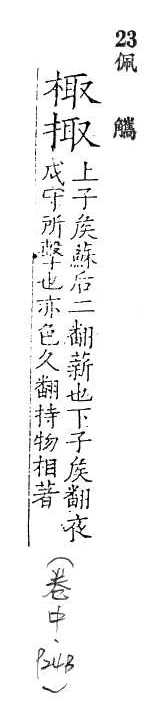 23
佩觿
棷掫
上子矦蘇后二翻薪也下子矦翻夜
戍守所擊也亦邑久翻持物相著
(卷中、P24B)